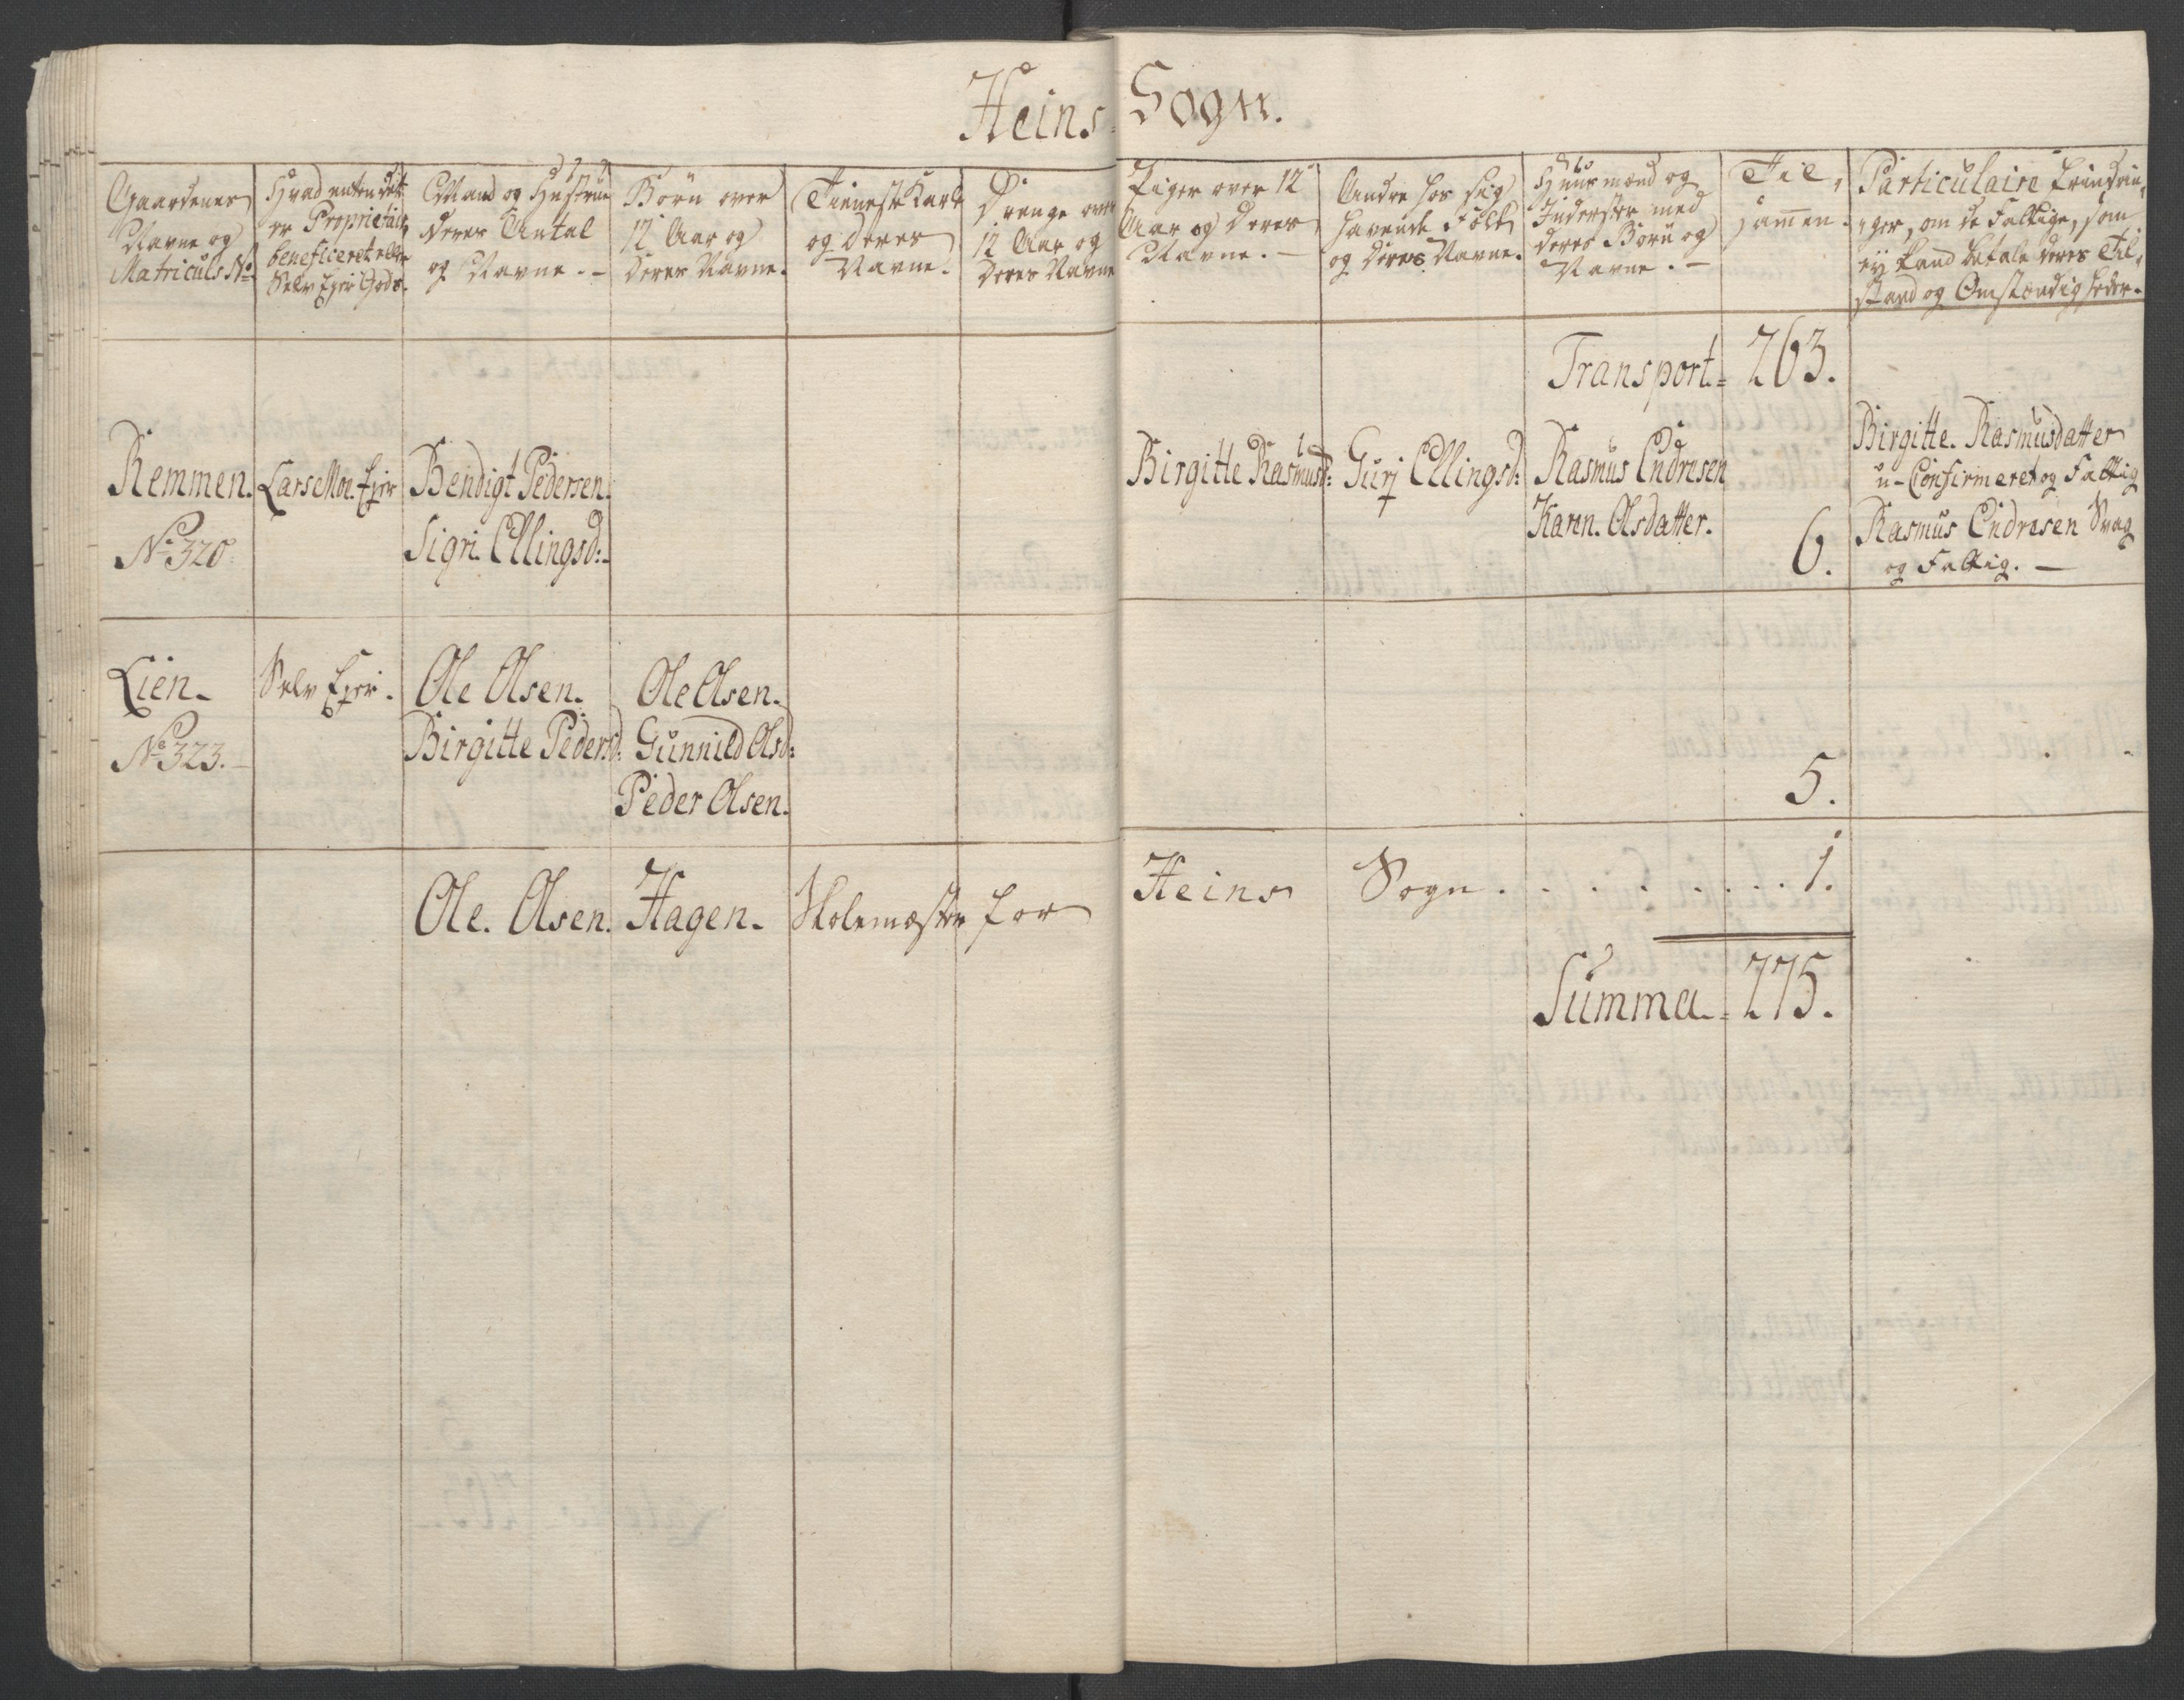 Heins Sogn.
Gaardenes
Navne og
Matriculs No
Hvad enten det
er Proprietair,
beneficeret eller
Selv Ejer Gods.
Mand og Hustrue
deres Antal
og Navne.-
Børn over
12 Aar og
deres Navne.
Tieneste Karle
og deres
Navne.
Drenge over
12 Aar og
deres Navne
Piger over 12
Aar og deres
Navne.-
Andre hos sig
havende Folk
og deres Navne.
Huusmænd og
Inderster med
deres Børn og
Navne.-
Til,
sammen.
Particulaire Erindrin,
ger, om de Fattige, som
ej kand betale deres Til,
stand og Omstændigheder.
Transport.= 263.
Remmen.
No 320.
Lars Mor. Ejer
Bendigt Pedersen.
Sigri Ellingsd:-
Birgitte Rasmusd:
Gurj Ellingsd:
Rasmus Endresen
Karen. Olsdatter.
6.
Birgitte. Rasmusdatter
u-Confirmeret og Fattig
Rasmus Endresen Svag
og Fattig.-
Lien-
No 323.-
Selv Ejer.
Ole Olsen.
Birgitte Pedersd:
Ole Olsen.
Gunnild Olsd:
Peder Olsen.
5.
Ole. Olsen. Hagen. Skolemæster for Heins Sogn . . . . . . . . 1.
Summa.= 275.